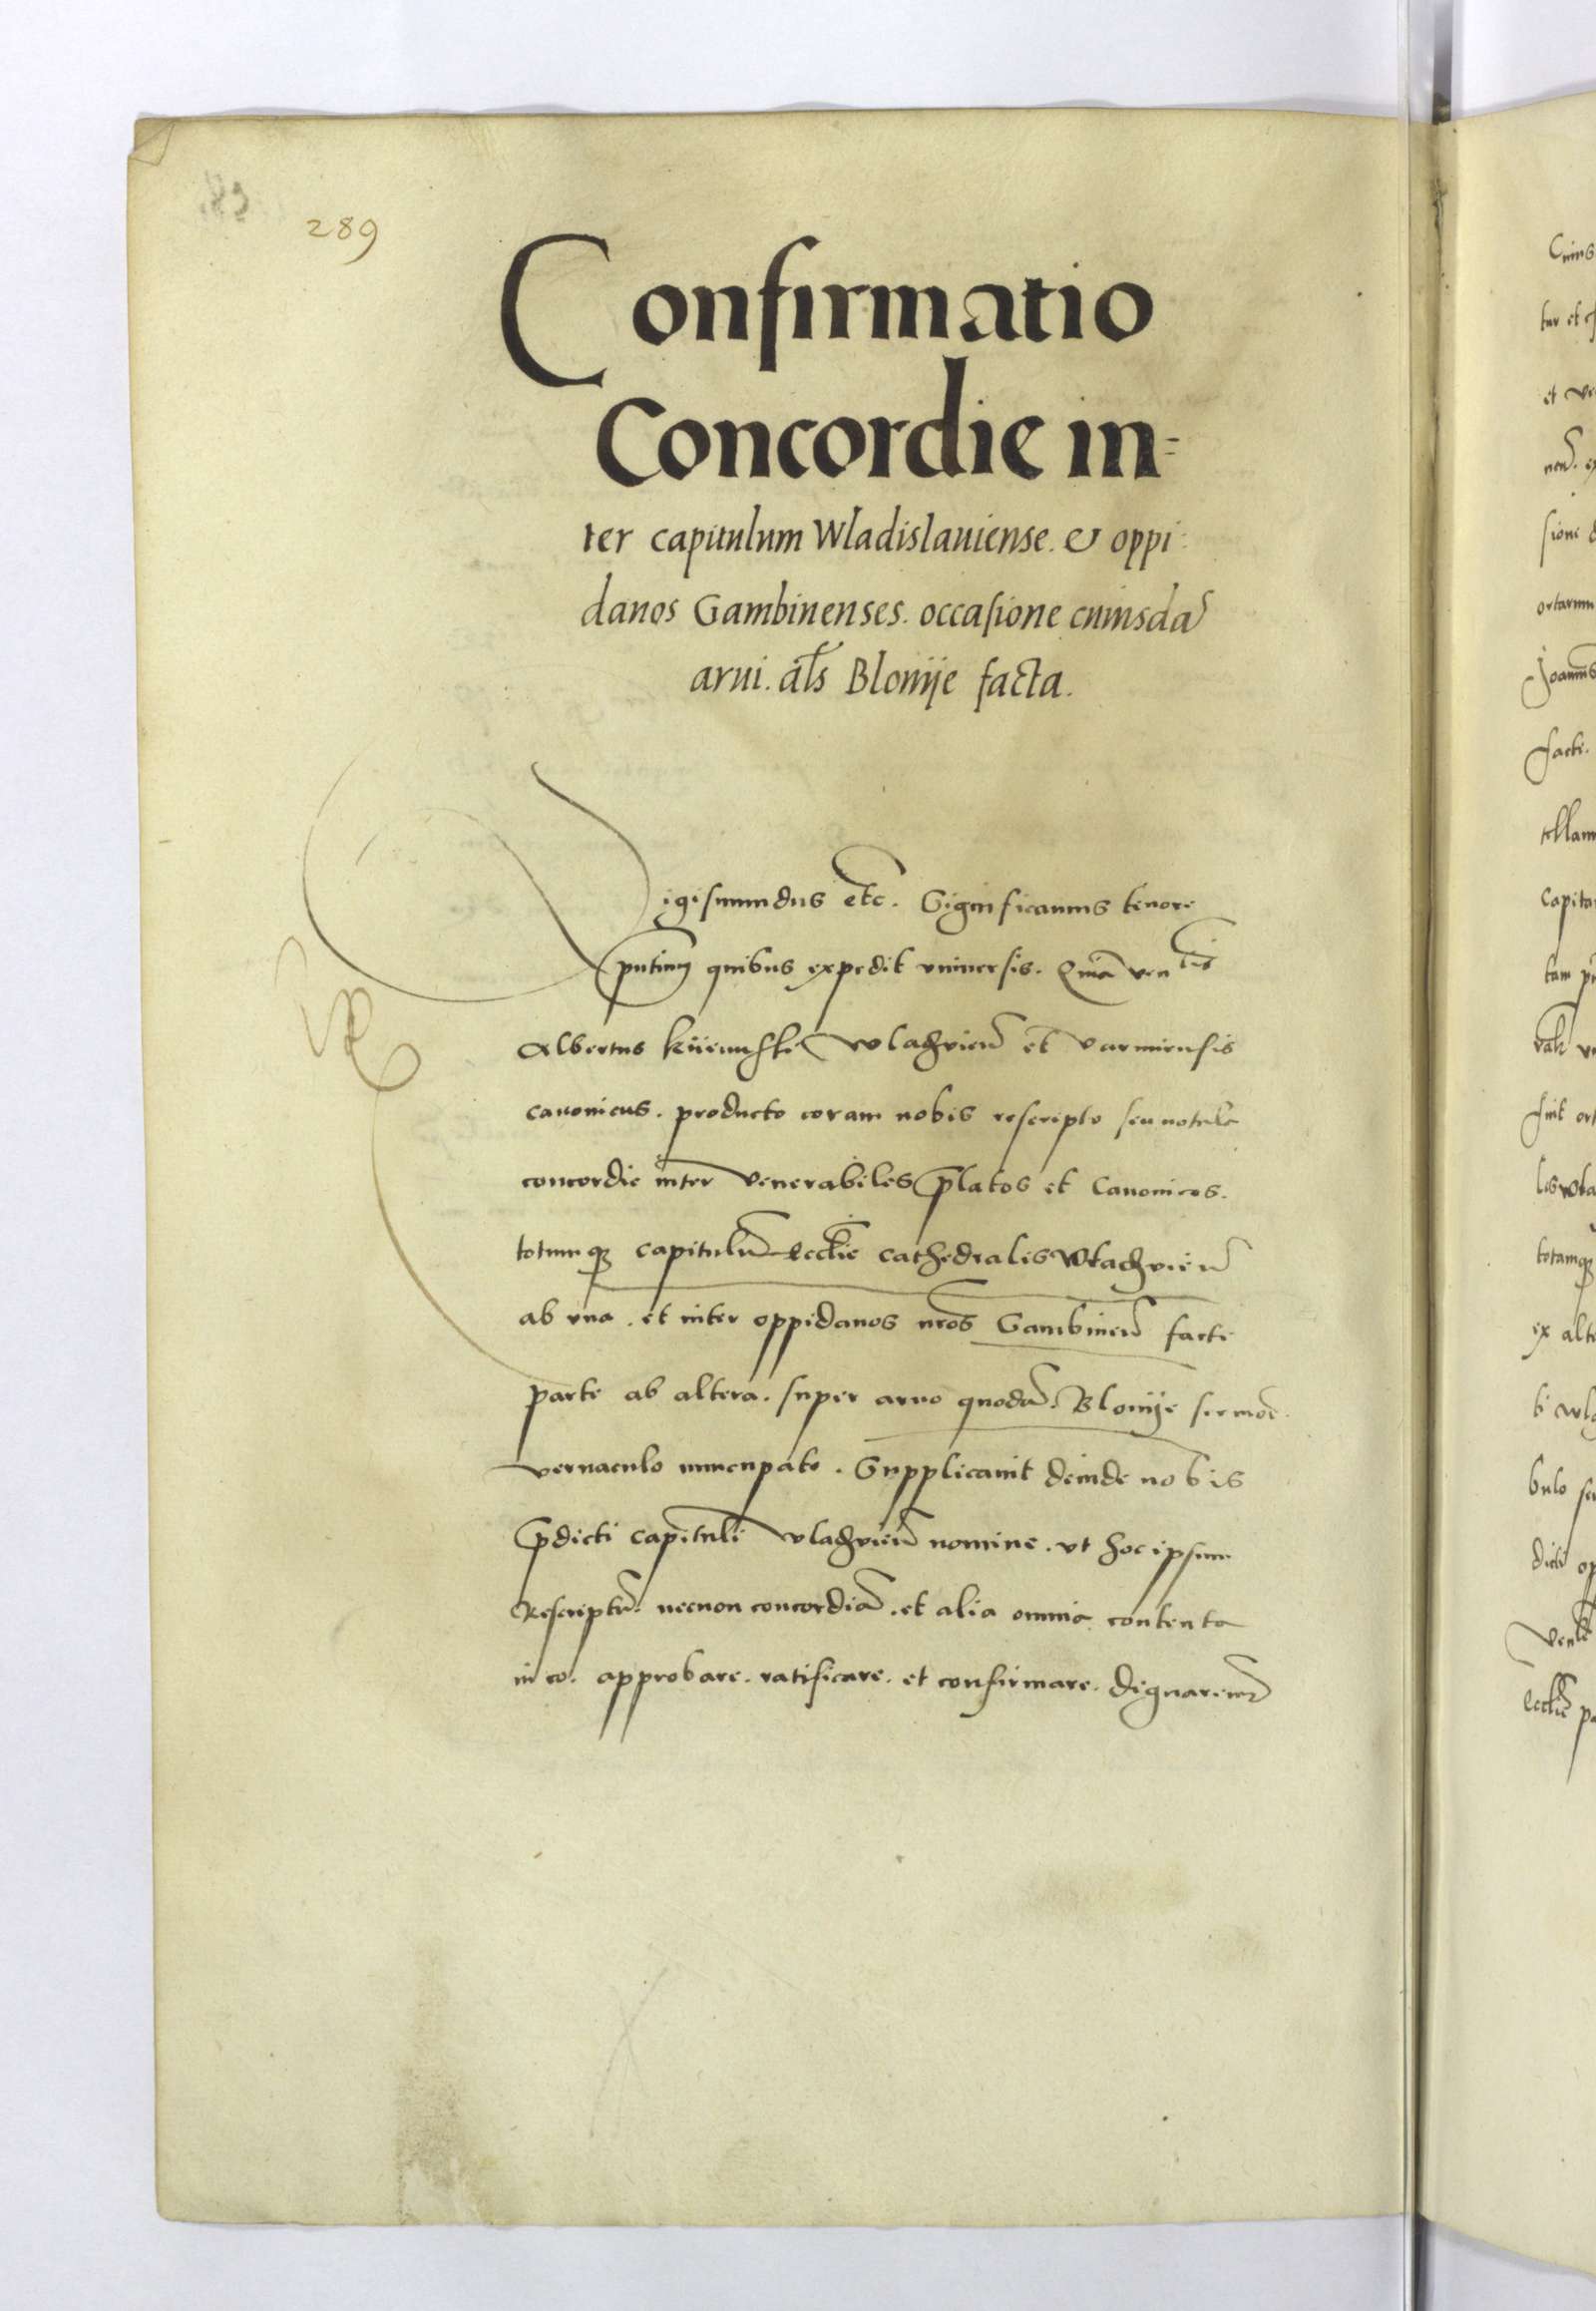 289
Confirmatio
Concordie in=
ter capitulum Wladislauiense. & oppi:
danos Gambinenses. occasione cuiusdā
arui. als Blonije facta.
Sigismundus etc. Significamus tenore
pntium quibus expedit vniuersis. Quia ven lis
Albertus Kijewski Wladzvien̄ et Varmiensis
canonicus. producto coram nobis rescripto seu notula
concordie inter Venerabiles p̄latos et Canonicos.
totumq; capitulū Ecclie cathedralis Wladzvien̄
ab vna. et inter oppidanos nros Gambinen̄ facte
parte ab altera. super aruo quodā. Blonije sermoē
vernaculo nuncupato. Supplicauit deinde nobis
p̄dicti capituli Vladzvien̄ nomine. vt hoc ipsum
Rescriptū. necnon concordiā. et alia omnia contenta
in eo. approbare. ratificare. et confirmare. dignaremr
Cuius
tur et
et
sione
ortarum
Joannis
facti.
capita
tam
fuit
totamq;
ex alte
bulo
dicti
Ecclie